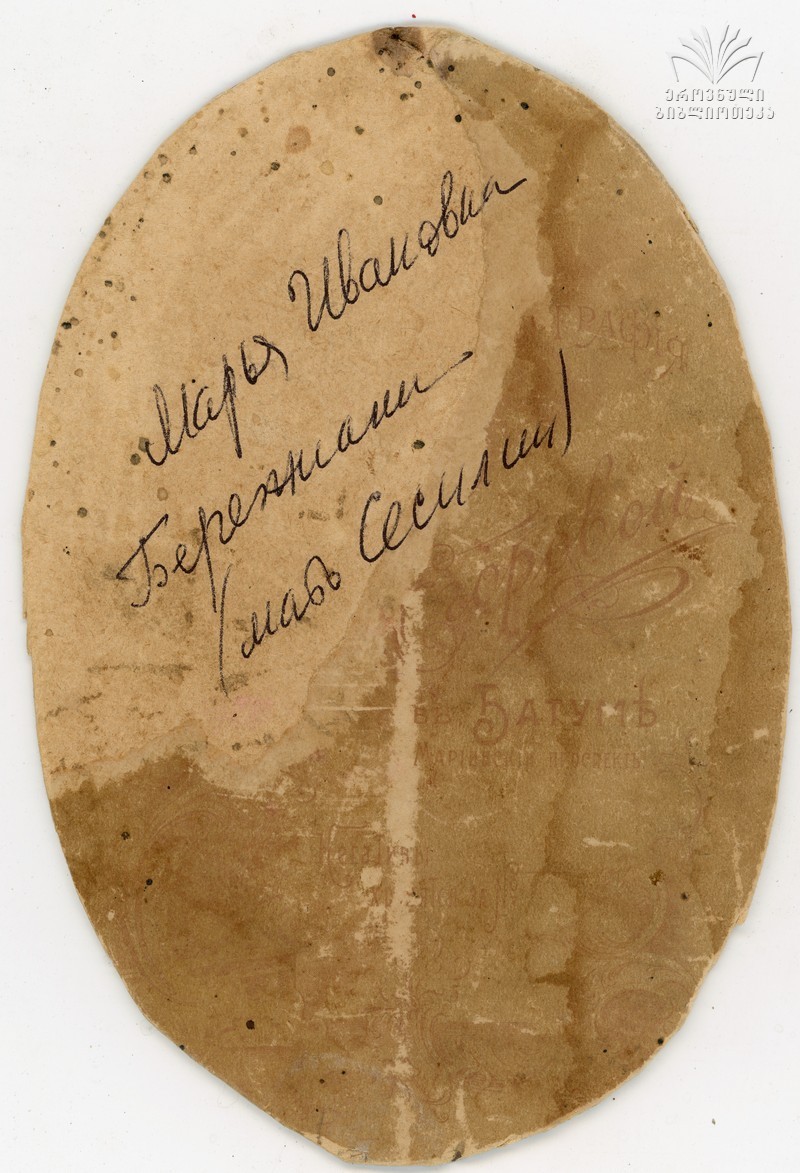 ეროვნული
ბიბლიოთეკა
Марья Ивановна
Бережиани
(мать Сесилии)
ГРАФІЯ
въ Батумѣ
Маріинскій проспектъ
Негативы